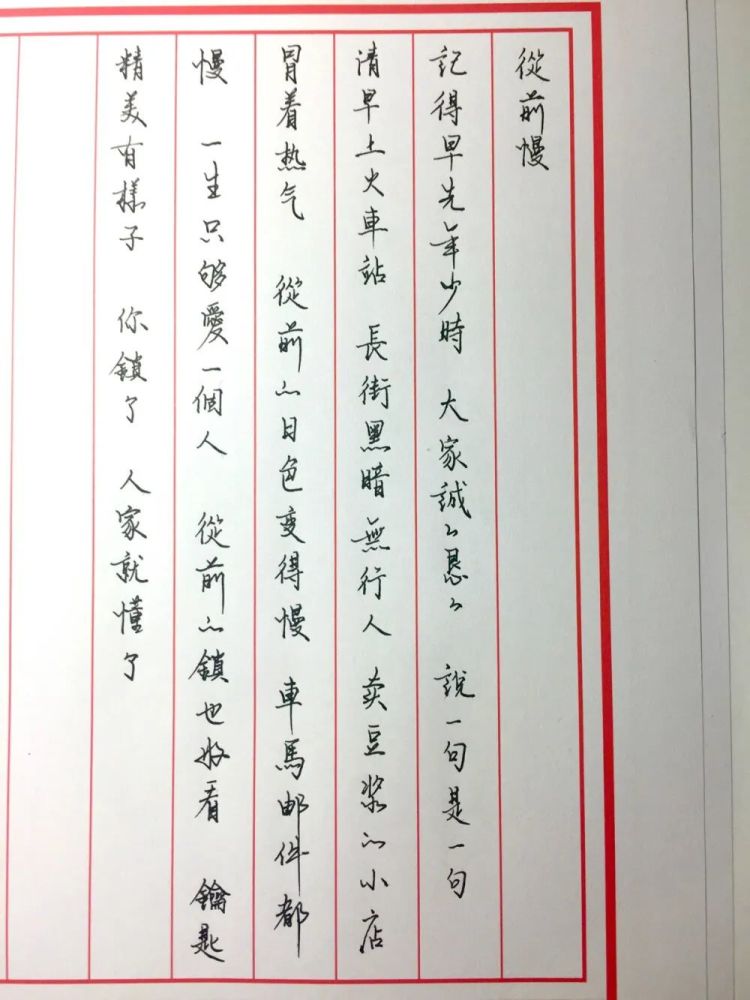 從前慢
記得早先年少時 大家誠々懇々 說一句是一句
清早上火車站 長街黑暗無行人 卖豆浆的小店
冒着热气 從前的日色变得慢 車馬邮件都
慢 一生只够愛一個人 從前的鎖也好看 鑰匙
精美有樣子 你鎖了 人家就懂了